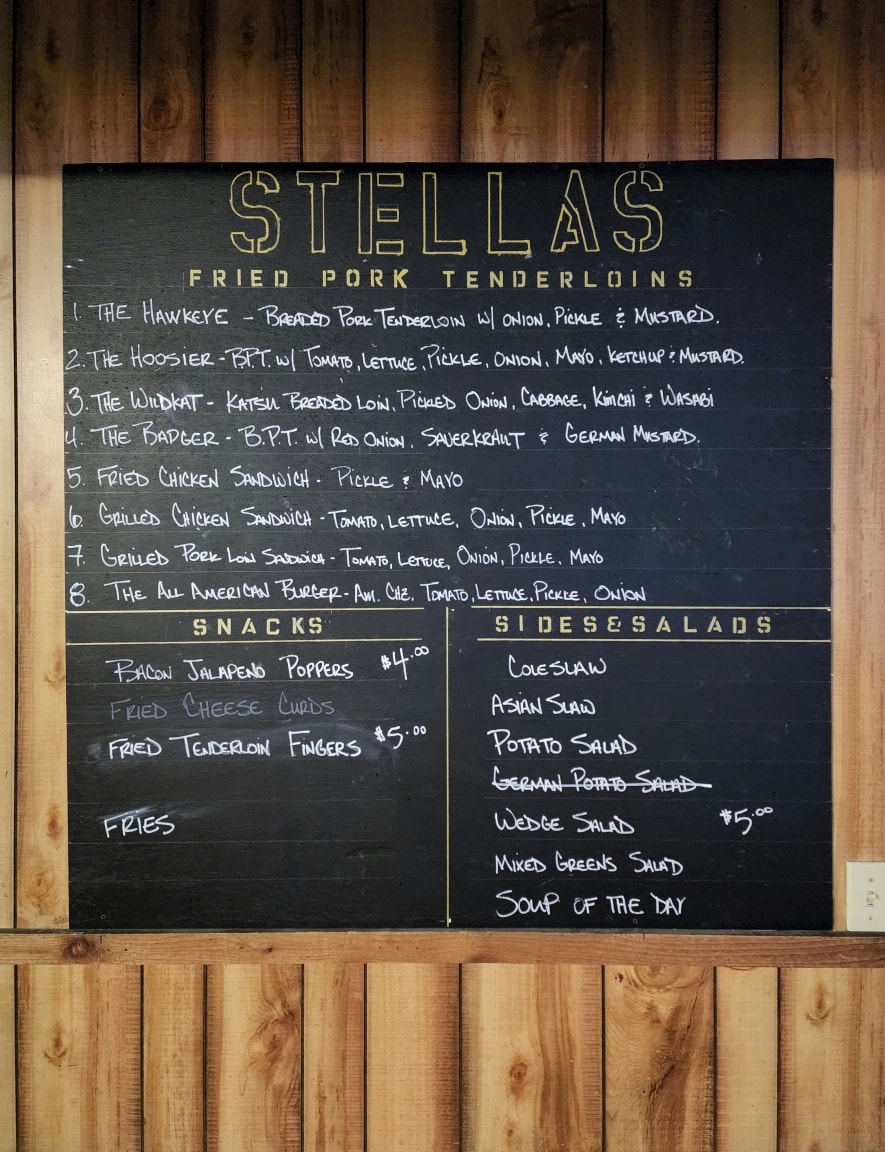 STELLAS
FRIED PORK TENDERLOINS
1. THE HAWKEYE - BREADED PORK TENDERLOIN W/ ONION, PICKLE & MUSTARD.
2. THE HOOSIER - B.P.T. W/ TOMATO, LETTUCE, PICKLE, ONION, MAYO, KETCHUP & MUSTARD.
3. THE WILDKAT - KATSU BREADED LOIN, PICKLED ONION, CABBAGE, KIMCHI & WASABI
4. THE BADGER - B.P.T. W/ RED ONION, SAUERKRAUT & GERMAN MUSTARD.
5. FRIED CHICKEN SANDWICH - PICKLE & MAYO
6. GRILLED CHICKEN SANDWICH - TOMATO, LETTUCE, ONION, PICKLE, MAYO
7. GRILLED PORK LOIN SANDWICH - TOMATO, LETTUCE, ONION, PICKLE, MAYO
8. THE ALL AMERICAN BURGER - AM. CHZ, TOMATO, LETTUCE, PICKLE, ONION
SNACKS
BACON JALAPENO POPPERS $4.00
FRIED CHEESE CURDS
FRIED TENDERLOIN FINGERS $5.00
FRIES
SIDES&SALADS
COLESLAW
ASIAN SLAW
POTATO SALAD
GERMAN POTATO SALAD
WEDGE SALAD $5.00
MIXED GREENS SALAD
SOUP OF THE DAY